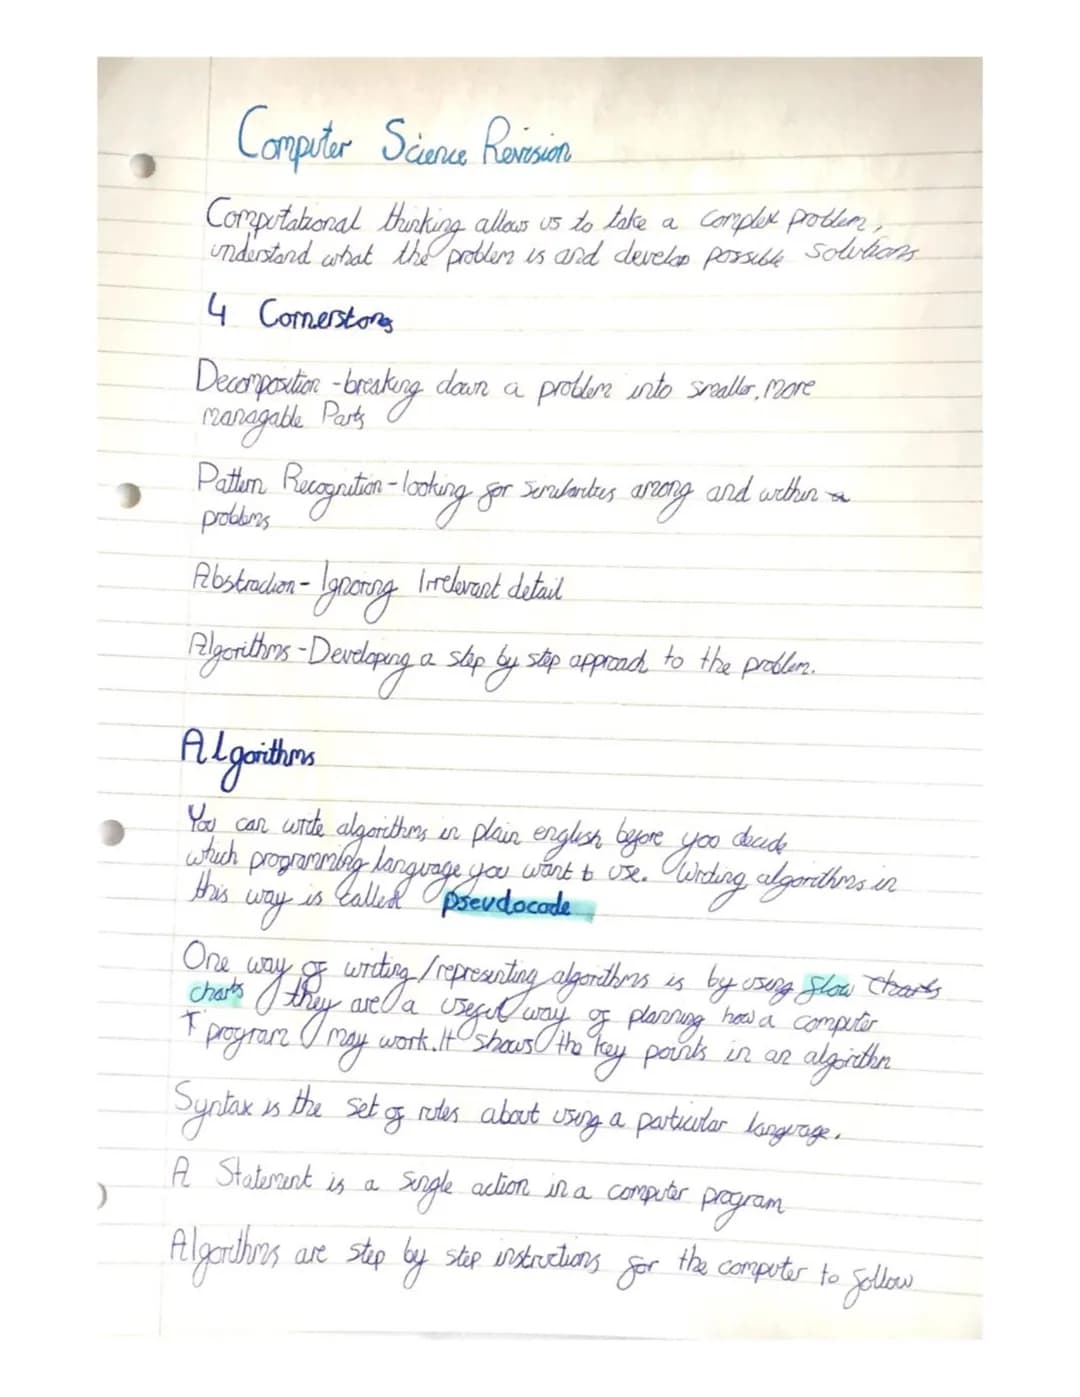 Computer Science Revision
Computational thinking allows us to take a complex problem,
understand what the problem is and develop possible solutions
4 Cornerstones
Decomposition - breaking down a problem into smaller, more
managable Parts
Pattern Recognition - looking for Similarities among and within a
problems
Abstraction - Ignoring Irrelevant detail
Algorithms - Developing a step by step approach to the problem.
Algorithms
You can write algorithms in plain english before you decide
which programming language you want to use. Writing algorithms in
this way is called pseudocode
One way of writing/representing algorithms is by using flow charts
charts they are a useful way of planning how a computer
program may work. It shows the key points in an algorithm
Syntax is the set of rules about using a particular language.
A Statement is a single action in a computer program
Algorithms are step by step instructions for the computer to follow